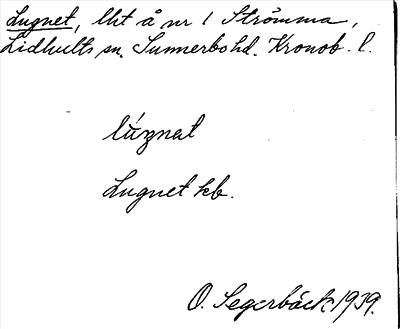 Lugnet, lht å nr 1 Strömma,
Lidhults sn. Sunnerbo hd. Kronob. l.
lúgnat
Lugnet kb.
O. Segerbäck 1939.